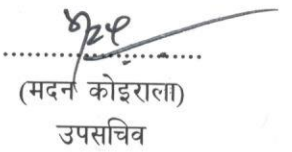 (मदन कोइराला)
उपसचिव